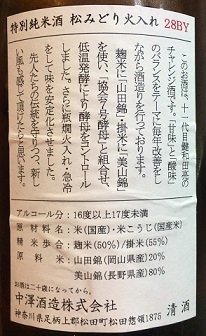 特別純米酒 松みどり火入れ 28BY
このお酒は、十一代目鍵和田亮の
チャレンジ酒です。「甘味」と「酸味」
のバランスをテーマに毎年改善をし
ながら酒造りを行っております。
麹米に「山田錦」・掛米に「美山錦」
を使い、「協会7号酵母」と組合せ、
低温発酵により酵母を健全に発酵
しました。さらに瓶燗火入れ・急冷
をして味を安定化させました。
先人たちの伝統を守りつつ、新し
い風も感じて頂けたらと思います。
アルコール分：16度以上17度未満
原材料名：米(国産)・米こうじ(国産米)
精米歩合：麹米(50%)/掛米(55%)
原料米：山田錦(岡山県産)20%
美山錦(長野県産)80%
お酒は二十歳になってから。
中澤酒造株式会社
神奈川県足柄上郡松田町松田惣領1875 清酒